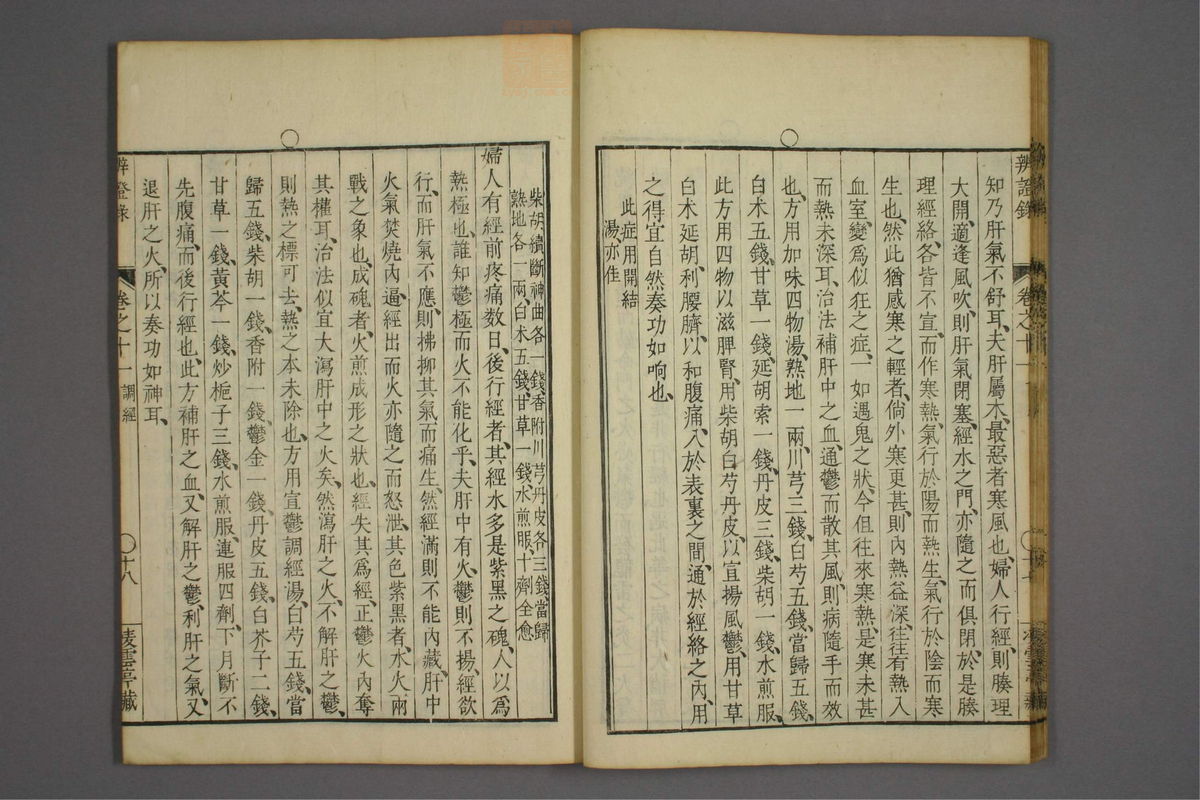 辨證錄
卷之十一
知乃肝氣不舒耳、夫肝屬木、最惡者寒風也、婦人行經、則腠理
大開、適逢風吹、則肝氣閉塞、經水之門、亦隨之而俱閉、於是腠
理經絡、各皆不宣、而作寒熱、氣行於陽而熱生、氣行於陰而寒
生也、然此猶感寒之輕者、倘外寒更甚、則內熱益深、往往有熱入
血室、變爲似狂之症、一如遇鬼之狀、今但往來寒熱、是寒未甚
而熱未深耳、治法補肝中之血、通鬱而散其風、則病隨手而效
也、方用加味四物湯、熟地一兩、川芎三錢、白芍五錢、當歸五錢、
白朮五錢、甘草一錢、延胡索一錢、丹皮三錢、柴胡一錢、水煎服、
此方用四物以滋脾腎、用柴胡白芍丹皮、以宣揚風鬱、用甘草
白朮延胡、利腰臍、以和腹痛、入於表裏之間、通於經絡之內、用
之得宜、自然奏功如响也、
此症用開結
湯、亦佳
柴胡續斷神曲各一錢、香附川芎丹皮各三錢、當歸
熟地各一兩、白朮五錢、甘草一錢、水煎服、十劑全愈
婦人有經前疼痛數日、後行經者、其經水多是紫黑之塊、人以爲
熱極也、誰知鬱極而火不能化乎、夫肝中有火、鬱則不揚、經欲
行、而肝氣不應、則拂抑其氣、而痛生、然經滿則不能內藏、肝中
火氣焚燒、內逼經出、而火亦隨之而怒泄、其色紫黑者、水火兩
戰之象也、成塊者、火煎成形之狀也、經失其爲經、正鬱火內奪
其權耳、治法似宜大瀉肝中之火矣、然瀉肝之火、不解肝之鬱、
則熱之標可去、熱之本未除也、方用宣鬱調經湯、白芍五錢、當
歸五錢、柴胡一錢、香附一錢、鬱金一錢、丹皮五錢、白芥子二錢、
甘草一錢、黃芩一錢、炒梔子三錢、水煎服、連服四劑、下月斷不
先腹痛、而後行經也、此方補肝之血、又解肝之鬱、利肝之氣、又
退肝之火、所以奏功如神耳、
辨證錄
卷之十一 調經
十八
凌雲亭藏